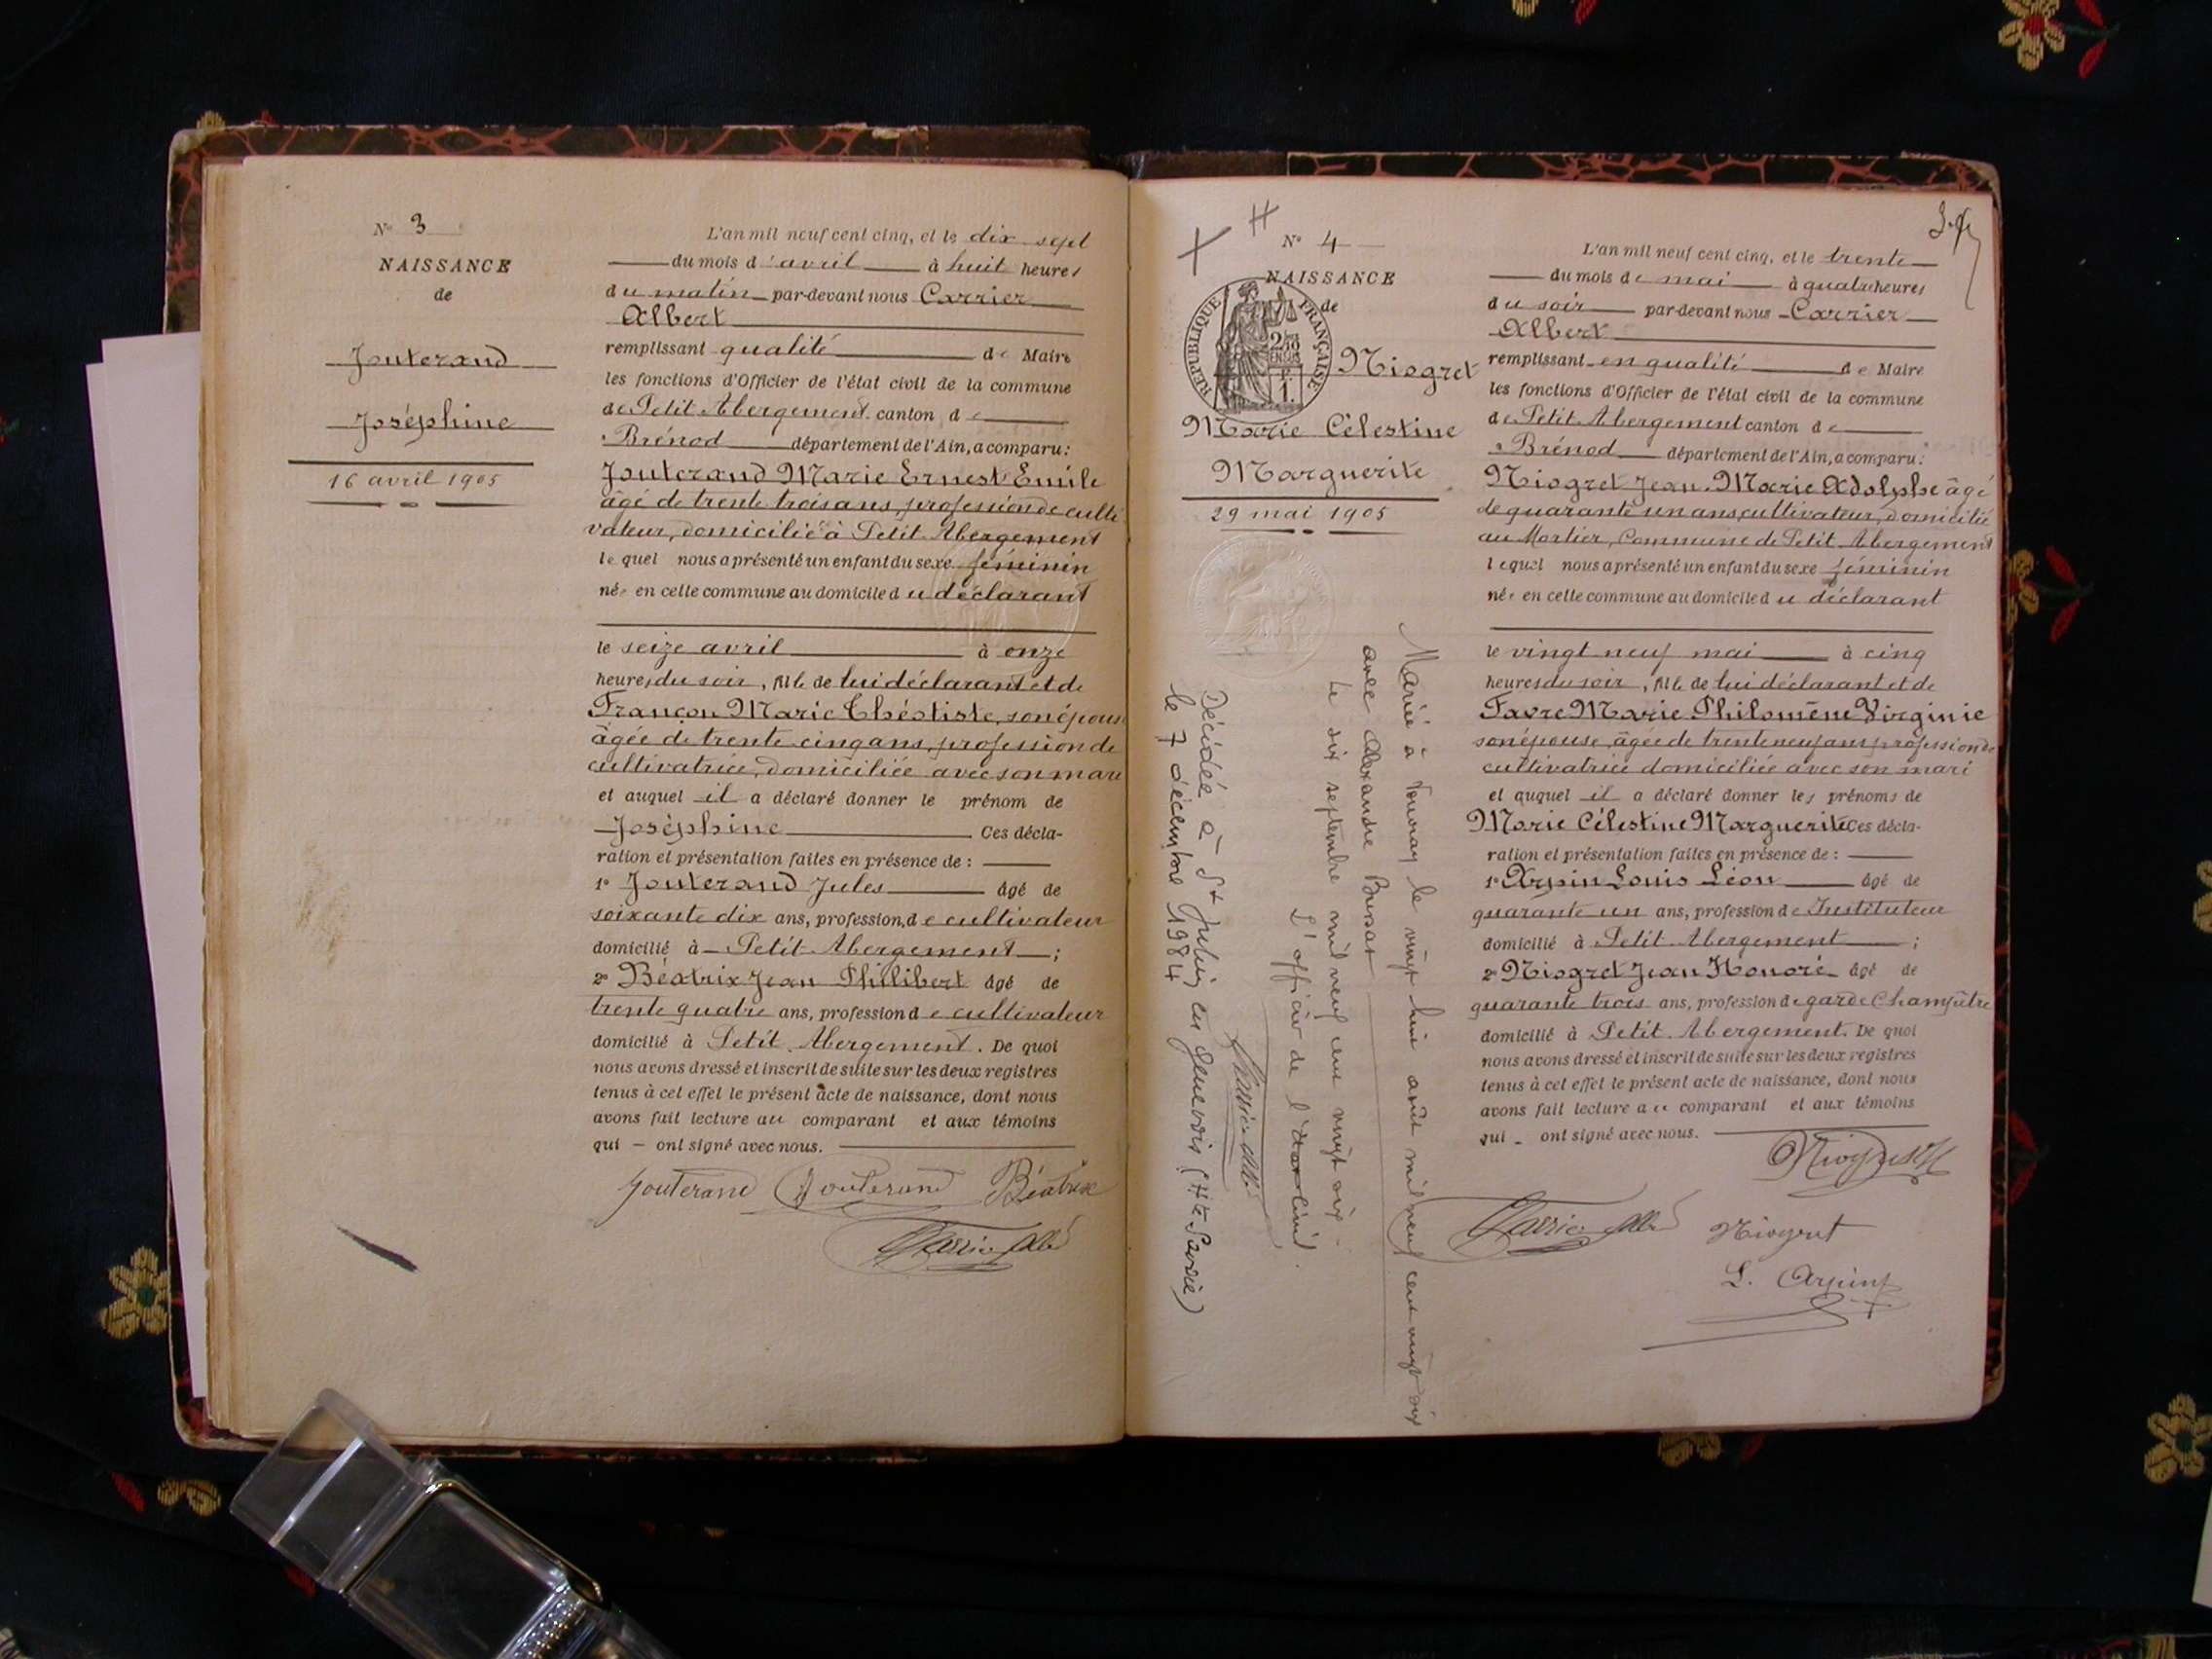 N° 3
NAISSANCE
de
Jouterand
Joséphine
16 avril 1905
L'an mil neuf cent cinq, et le dix sept
du mois d'avril à huit heures
du matin par-devant nous Carrier
Albert
remplissant qualité de Maire
les fonctions d'Officier de l'état civil de la commune
de Petit Abergement canton de
Brénod département de l'Ain, a comparu:
Jouterand Marie Ernest Emile
âgé de trente trois ans, profession de culti
vateur, domicilié à Petit Abergement
lequel nous a présenté un enfant du sexe féminin
née en cette commune au domicile du déclarant
le seize avril à onze
heures du soir, fille de lui déclarant et de
Françon Marie Théotiste, son épouse
âgée de trente cinq ans, profession de
cultivatrice, domiciliée avec son mari
et auquel il a déclaré donner le prénom de
Joséphine Ces décla-
ration et présentation faites en présence de :
1° Jouterand Jules âgé de
soixante dix ans, profession de cultivateur
domicilié à Petit Abergement ;
2° Béatrix Jean Philibert âgé de
trente quatre ans, profession de cultivateur
domicilié à Petit Abergement. De quoi
nous avons dressé et inscrit de suite sur les deux registres
tenus à cet effet le présent acte de naissance, dont nous
avons fait lecture au comparant et aux témoins
qui ont signé avec nous.
Jouterand Jouterand Béatrix
Carrier Albert
N° 4
NAISSANCE
de
REPUBLIQUE FRANÇAISE
Niogret
Marie Célestine
Marguerite
29 mai 1905
Mariée à Touvray le vingt huit août mil neuf cent vingt six
avec Alexandre Bussat
Le six septembre mil neuf cent vingt six.
L'officier de l'état civil.
Carrier Albert
Décédée à St Julien en Genevois (Hte Savoie)
le 7 décembre 1984
L'an mil neuf cent cinq, et le trente
du mois de mai à quatre heures
du soir par-devant nous Carrier
Albert
remplissant en qualité de Maire
les fonctions d'Officier de l'état civil de la commune
de Petit Abergement canton de
Brénod département de l'Ain, a comparu:
Niogret Jean Marie Adolphe âgé
de quarante un ans, cultivateur, domicilié
au Mortier, Commune de Petit Abergement
lequel nous a présenté un enfant du sexe féminin
née en cette commune au domicile du déclarant
le vingt neuf mai à cinq
heures du soir, fille de lui déclarant et de
Favre Marie Philomène Virginie
son épouse, âgée de trente neuf ans, profession de
cultivatrice domiciliée avec son mari
et auquel il a déclaré donner les prénoms de
Marie Célestine Marguerite Ces décla-
ration et présentation faites en présence de :
1° Arpin Louis Léon âgé de
quarante un ans, profession de Instituteur
domicilié à Petit Abergement ;
2° Niogret Jean Honoré âgé de
quarante trois ans, profession de garde Champêtre
domicilié à Petit Abergement. De quoi
nous avons dressé et inscrit de suite sur les deux registres
tenus à cet effet le présent acte de naissance, dont nous
avons fait lecture au comparant et aux témoins
qui ont signé avec nous.
Niogret
Carrier Albert Niogret
L. Arpin